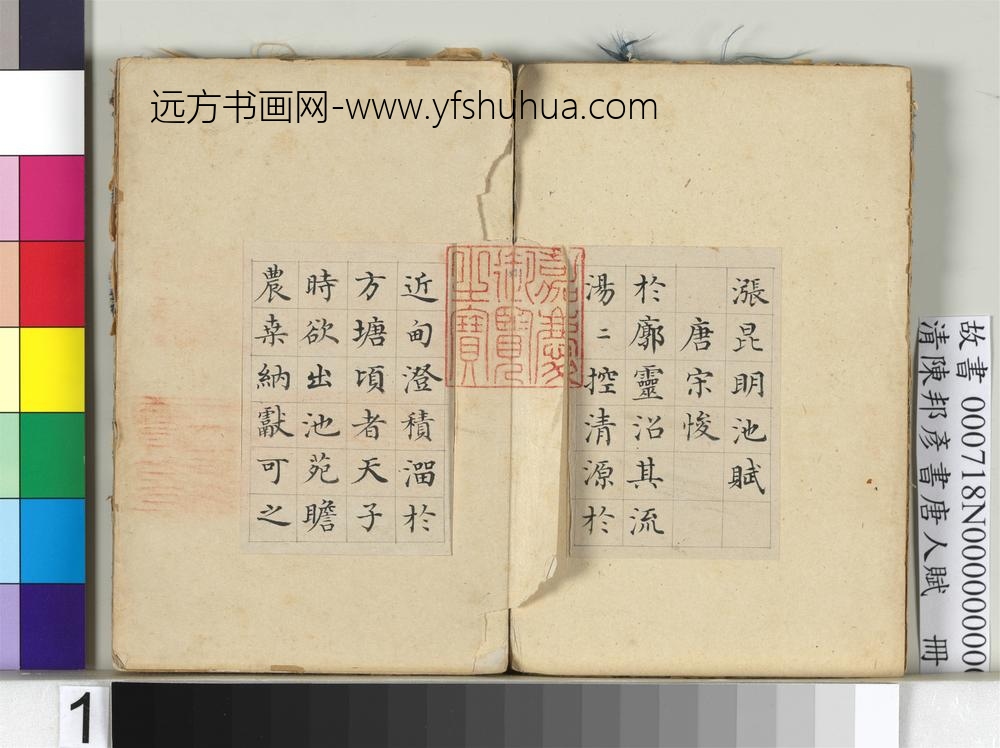 远方书画网-www.yfshuhua.com
漲昆明池賦
唐宋悛
於廓靈沼其流
湯〻控清源於
近甸澄積溜於
方塘頃者天子
時欲出池苑瞻
農桒納獻可之
嘉慶
御覽
之寶
故書 000718N0000000
清陳邦彥書唐人賦 冊
1